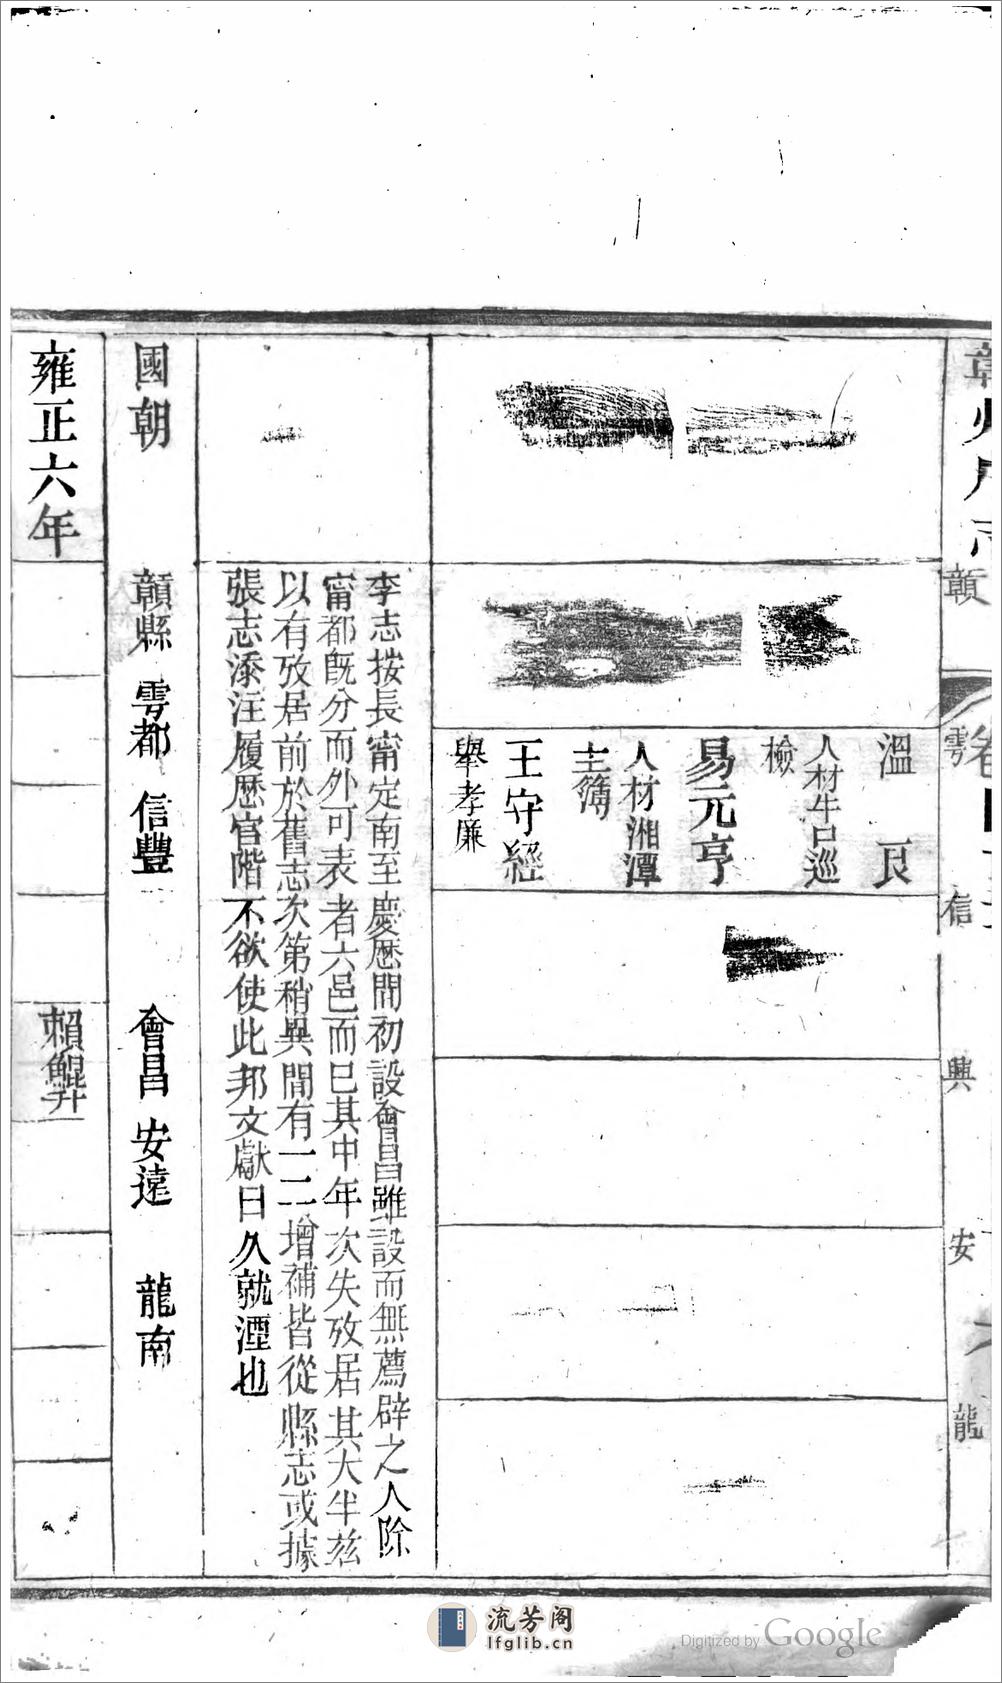 贛州府志
贛
雩
信
興
安
龍
溫 艮
人材牛口巡
檢
易元亨
人材湘潭
主簿
王守經
舉孝廉
李志按長甯定南至慶厯間初設會昌雖設而無薦辟之人除
甯都旣分而外可表者六邑而已其中年次失攷居其大半玆
以有攷居前於舊志次第稍異間有一二增補皆從縣志或據
張志添注履厯官階不欲使此邦文獻日久就湮也
國朝
贛縣 雩都 信豐 會昌 安遠 龍南
雍正六年
賴鯤升
流芳阁
lfglib.cn
Digitized by Google